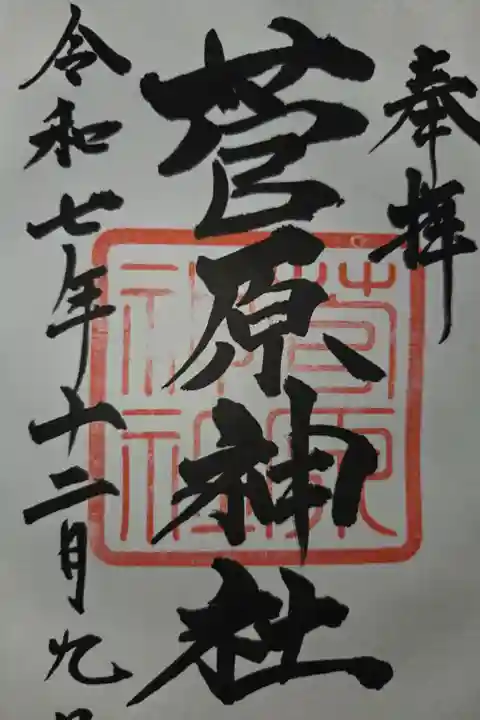 奉拝
菅原神社
令和七年十二月九日
菅原
神社